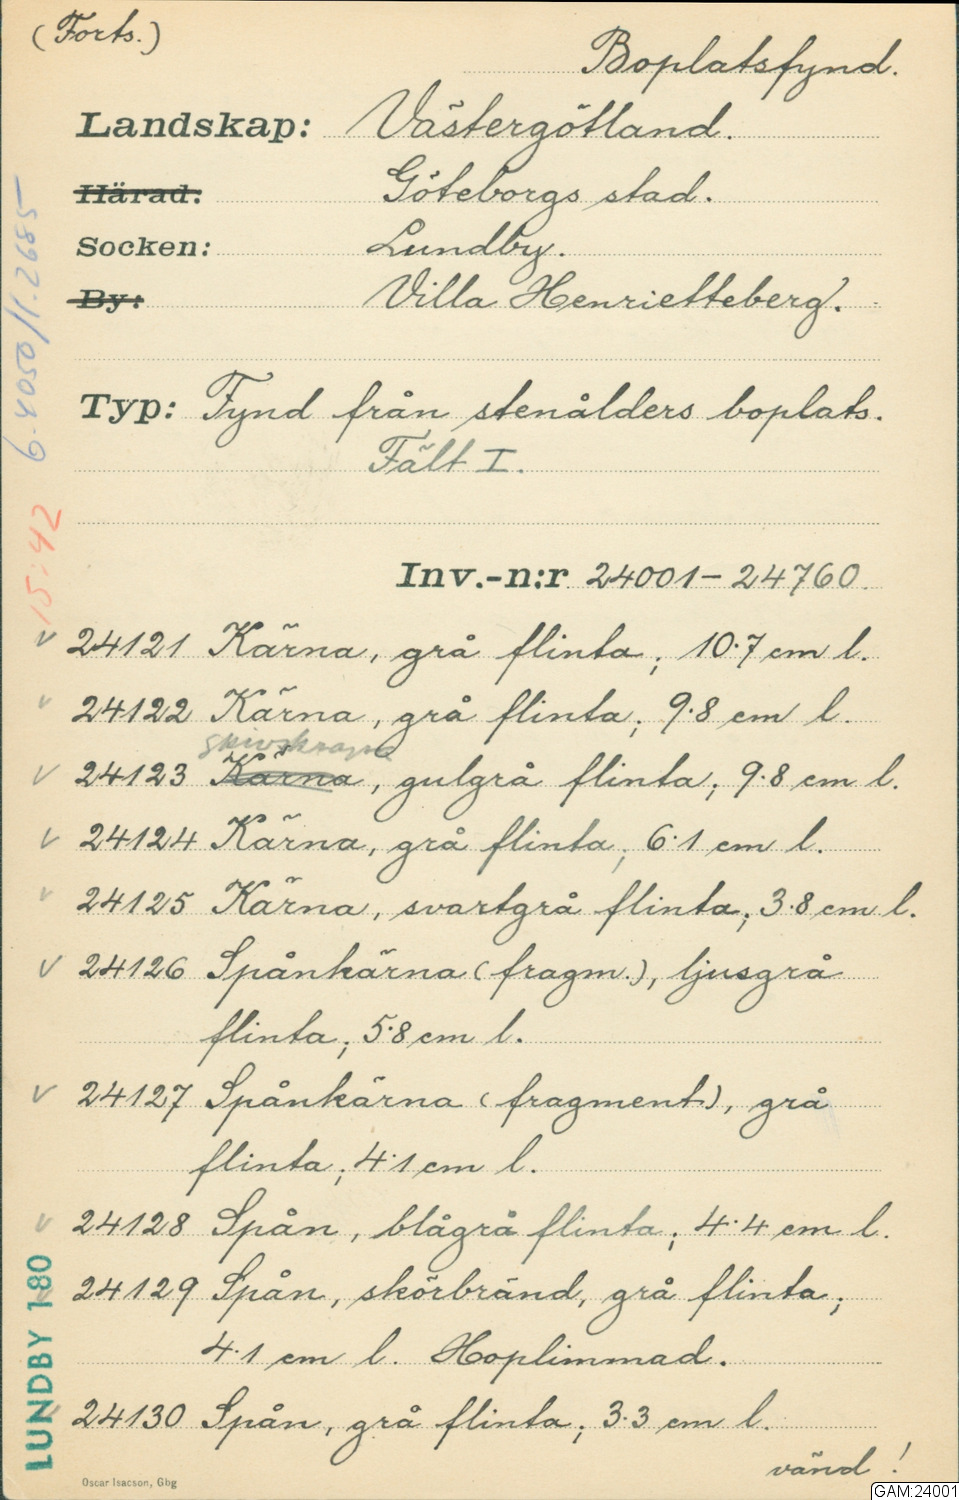 (Forts.)
Boplatsfynd.
Landskap: Västergötland.
Härad: Göteborgs stad.
Socken: Lundby.
By: Villa Henrietteberg.
Typ: Fynd från stenålders boplats.
Fält I.
Inv.-n:r 24001-24760
v 24121 Kärna, grå flinta; 10·7 cm l.
v 24122 Kärna, grå flinta; 9·8 cm l.
skivskrapa
v 24123 Kärna, gulgrå flinta; 9·8 cm l.
v 24124 Kärna, grå flinta; 6·1 cm l.
v 24125 Kärna, svartgrå flinta; 3·8 cm l.
v 24126 Spånkärna (fragm.), ljusgrå
flinta; 5·8 cm l.
v 24127 Spånkärna (fragment), grå
flinta; 4·1 cm l.
v 24128 Spån, blågrå flinta; 4·4 cm l.
24129 Spån, skörbränd, grå flinta;
4·1 cm l. Hoplimmad.
24130 Spån, grå flinta; 3·3 cm l.
vänd!
Oscar Isacson, Gbg
15:42
LUNDBY 180
GAM:24001